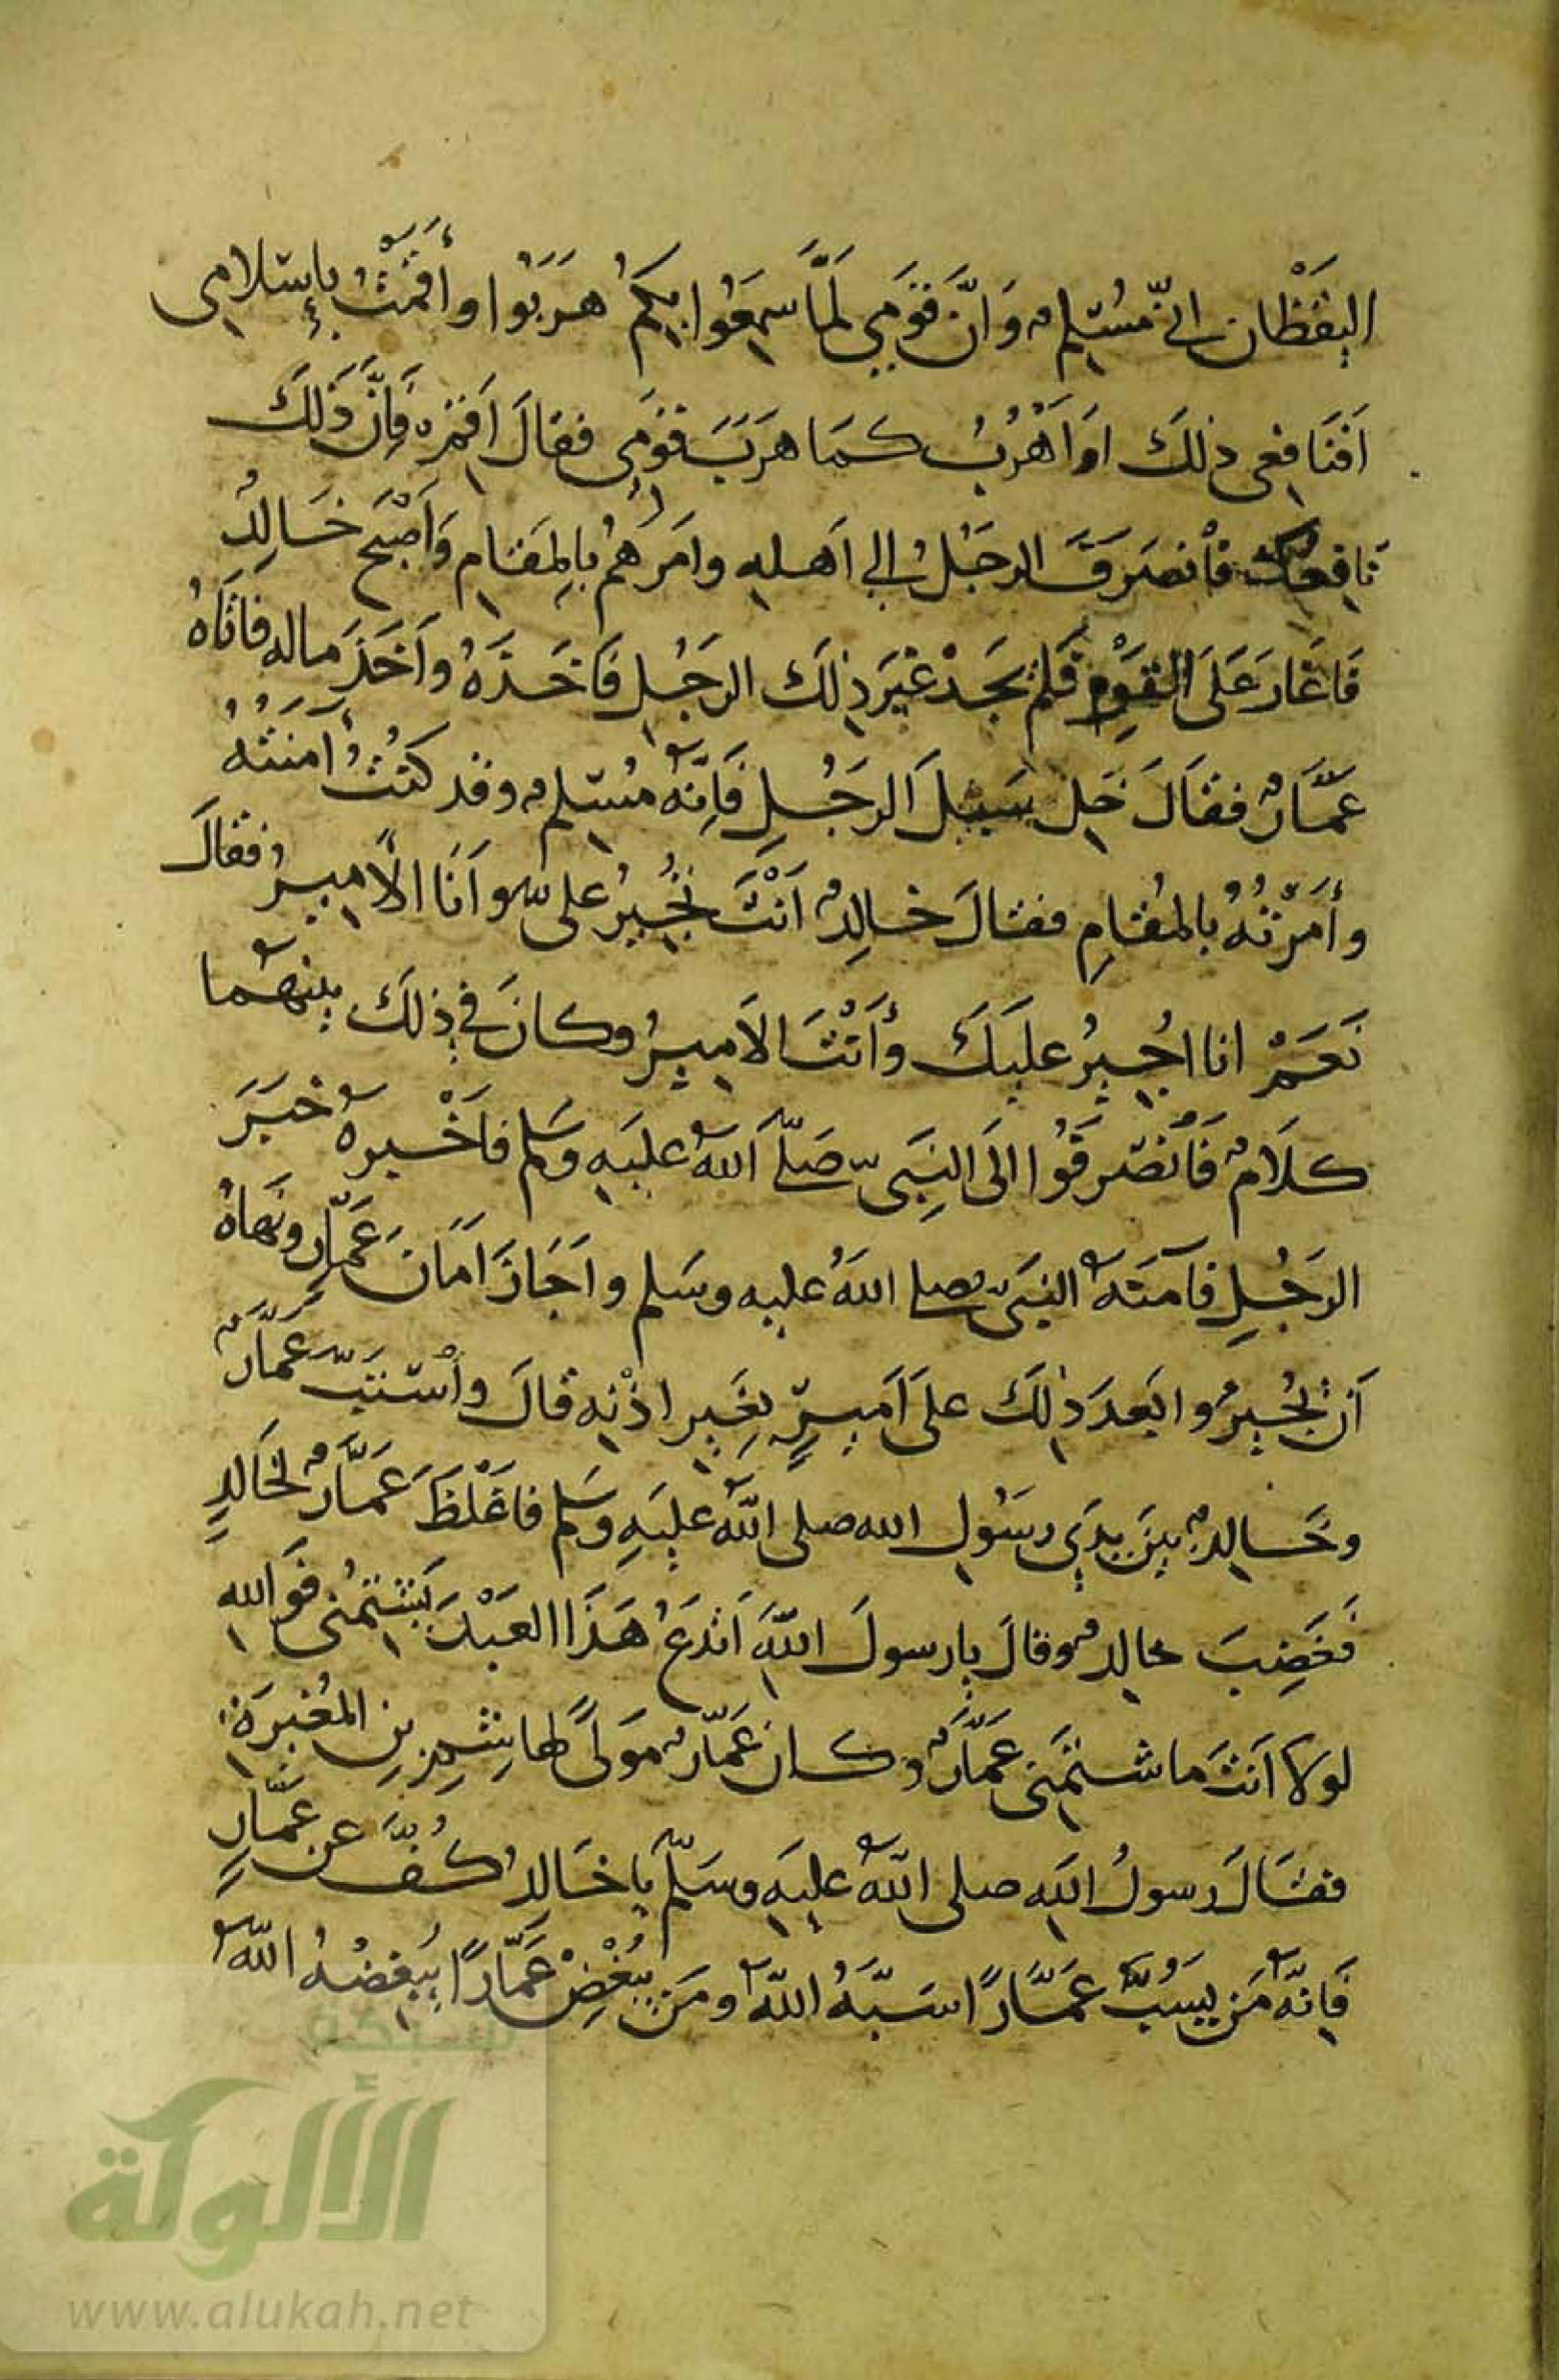 اليَقْظَان اِنّي مُسْلِمٌ وَانَّ قَوْمِي لَمَّا سَمِعُوا بِكُمْ هَرَبُوا وأَقَمْتُ بِإِسْلامِي
اَفَنَافِعِي ذلكَ اوَاَهْرُبُ كَمَا هَرَبَ قَوْمِي فقالَ اَقِمْ فَاِنَّ ذَلِكَ
نافِعُكَ فَانصَرَفَ الرجُلُ إلى اَهلِهِ وامَرَهُمْ بالِمَقَامِ وَاَصْبَحَ خَالِدٌ
فَاغَارَ عَلَى القَوْمِ فَلَمْ يَجَدْ غَيْرَ ذلِكَ الرجُلِ فَاَخَذَهُ واَخَذَ ماله فَاتَاهُ
عَمَّارٌ فقَالَ خَلِ سَبيلَ الرجُلِ فَاِنَّهُ مُسْلِمٌ وقد كُنْتُ آمَنْتُهُ
وأَمَرْتُهُ بالمُقَامِ فقالَ خالِدٌ اَنْتَ تُجِيرُ عليَّ وانَا الأمِيرُ فقالَ
نَعَمْ انا اُجِيرُ عليكَ وأَنْتَ الاَمِيرُ وكانَ في ذِلكَ بينهما
كلَامٌ فَاَنصَرفُوا الَى النَبِيّ صَلَّى اَللهُ عليَهِ وَسَلم فاَخْبروهُ خبَرَ
الرجُلِ فآمَنَهُ النبَيّ صلى اللهُ عليه وسَلم واَجَازَ اَمَانَ عَمَّارٍ ونَهَاهُ
اَنْ يُجِيرُوا بَعدَ ذلِكَ علَى اَمِيرٍ بِغَيرِ اذْنِه قالَ واَسْتَبَّ عَمَّارٌ
وخَالِدٌ بينَ يدَي رسَوُلِ الله صلى اللهُ عليَهِ وَسَلم فاَغْلَظَ عَمَّارٌ لخَالدٍ
فَغَضِبَ خالدٌ وقالَ يا رسولَ اللهِ اَتَدَعُ هَذَا العَبْدَ يَشْتِمُنِي فَوَاللهِ
لوَلا اَنتَ ما شتَمَنِي عَمَّارٌ وكانَ عَمَّارٌ مَولًى لهاشِمِ بنِ المُغيرَةِ
فقَالَ رسولُ اللهِ صلى اللهُ عليَهِ وسَلّم يا خَالدُ كُفَّ عن عَمَّارٍ
فَاِنَّهُ مَن يَسُبَّ عَمَّارًا سَبَّهُ اللهُ ومَن يُبْغِضْ عَمَّارًا يُبْغِضْهُ اللهُ
شبكة
الألوكة
www.alukah.net